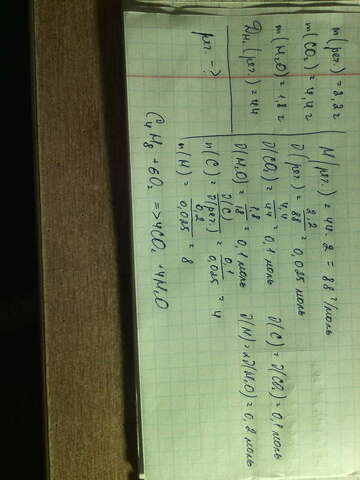 m(реч.) = 2,2 г
m(CO₂) = 4,4 г
m(H₂O) = 1,8 г
Dн₂(реч.) = 44
реч. - ?
M(реч.) = 44 · 2 = 88 г/моль
ν(реч.) = 2,2/88 = 0,025 моль
ν(CO₂) = 4,4/44 = 0,1 моль ν(C) = ν(CO₂) = 0,1 моль
ν(H₂O) = 1,8/18 = 0,1 моль ν(H) = 2ν(H₂O) = 0,2 моль
n(C) = ν(C)/ν(реч.) = 0,1/0,025 = 4
n(H) = 0,2/0,025 = 8
C₄H₈ + 6O₂ => 4CO₂ + 4H₂O